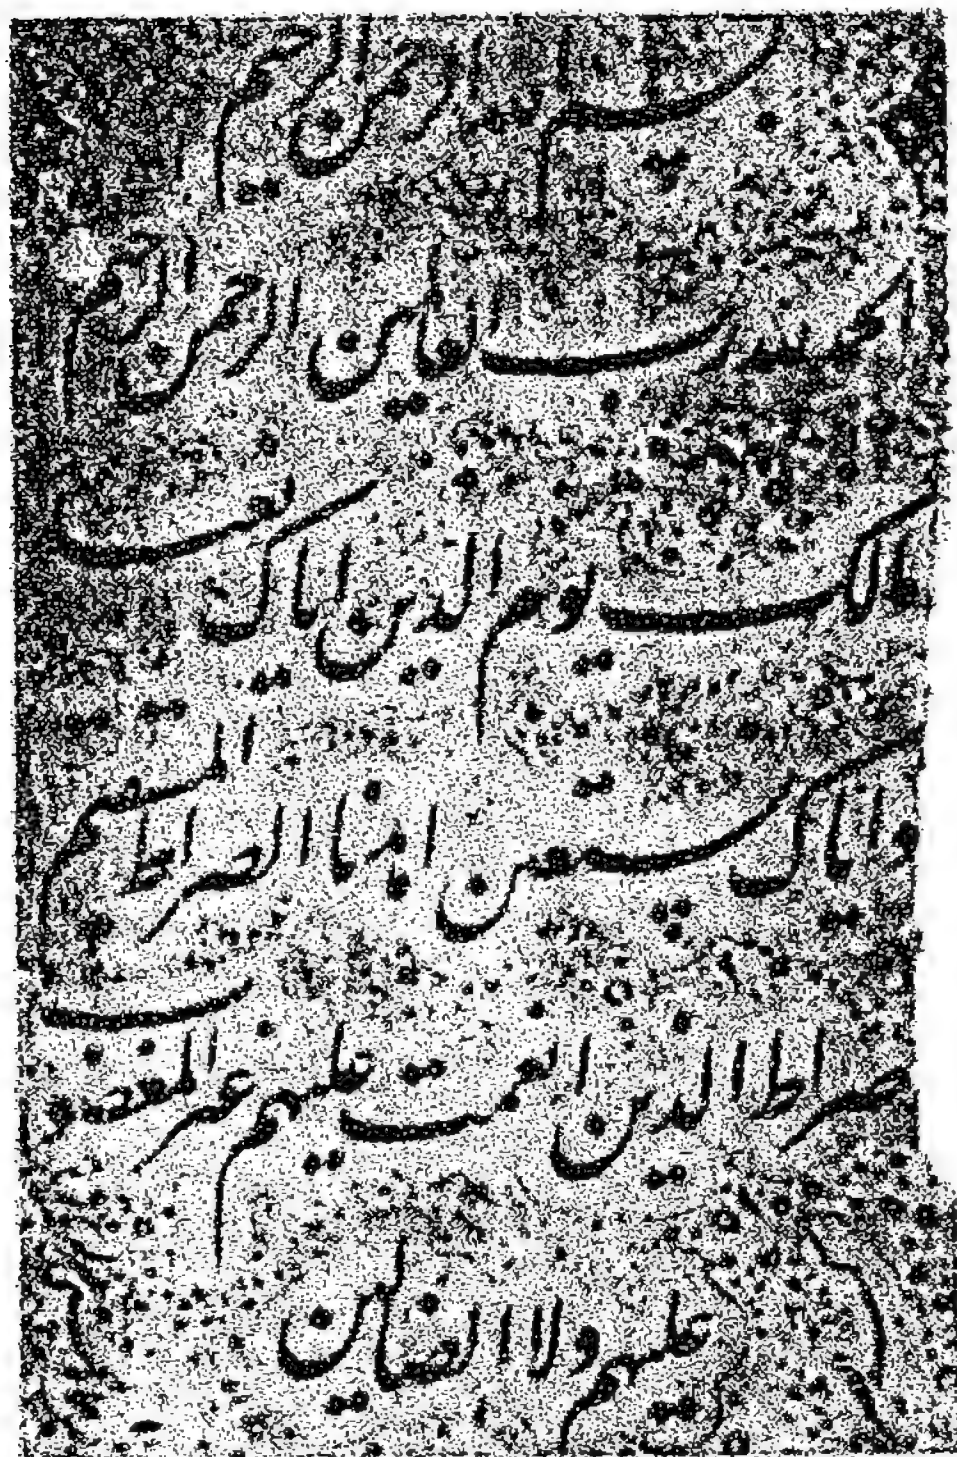 بسم الله الرحمن الرحيم
الحمد لله رب العالمين الرحمن الرحيم
مالك يوم الدين اياك نعبد و
اياك نستعين اهدنا الصراط المستقيم
صراط الذين انعمت عليهم غير المغضوب
عليهم ولا الضالين